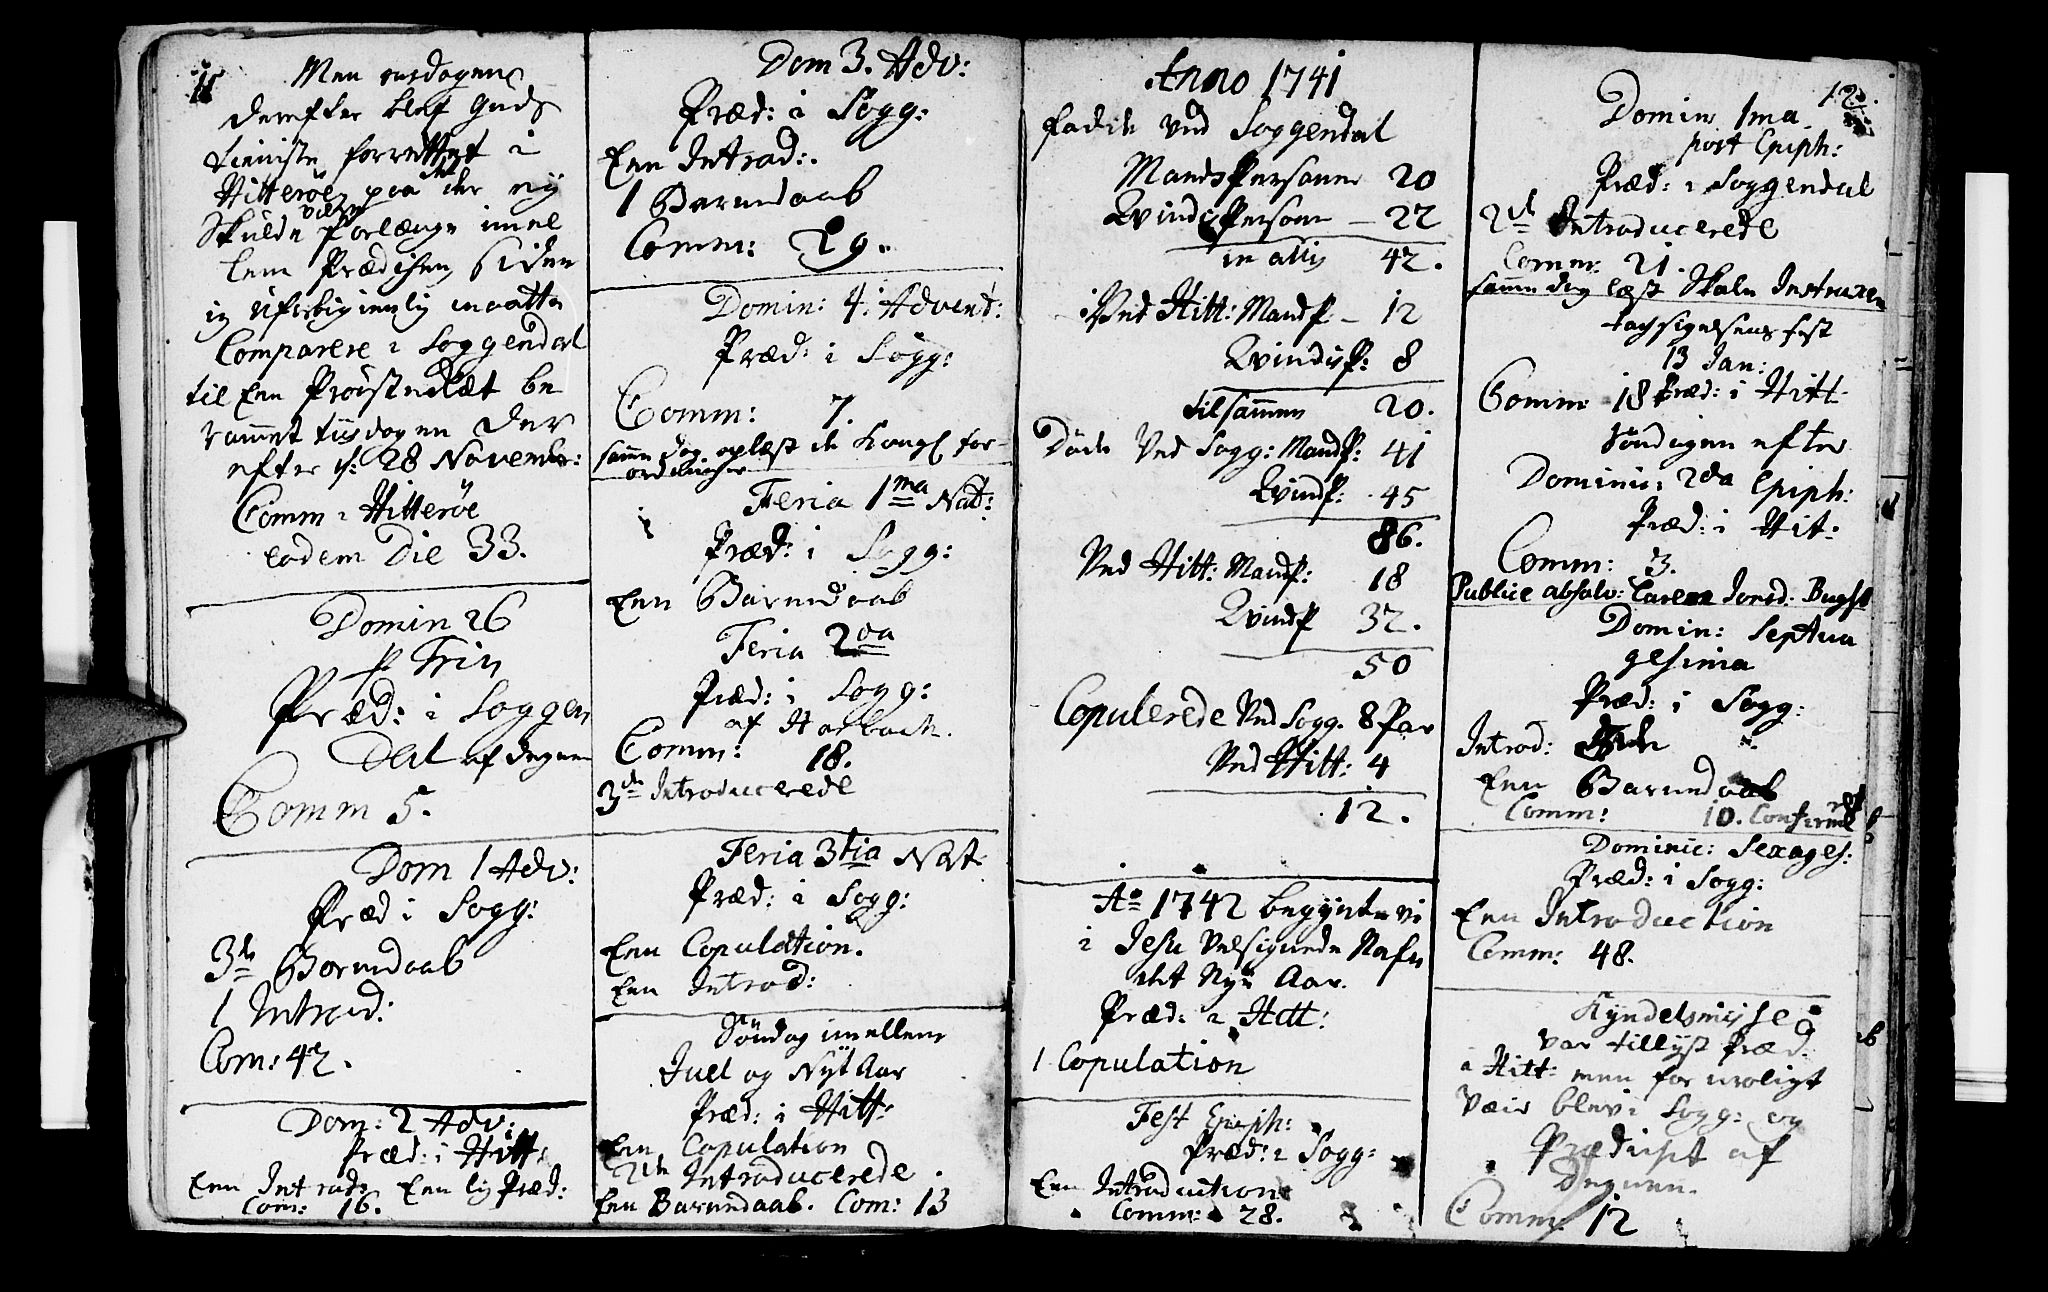 11
Men onsdagen
derefter blef Guds
tieniste forrettet i
Hitterøe, paa det der ey
Skulde være Forlænge imel
lem Prædiken, Siden
ieg Uforbigiengelig maatte
Comparere i Soggendal
til Een Prousteræt be
rammet tiisdagen der
efter d: 28 Novemb:
Comm i Hitterøe
eodem Die 33.
Domin 26
p Trin
Præd: i Soggen
Dal af degnen
Comm 5.
Dom 1 Adv:
Præd i Sogg:
3de Barnedaab
1 Introd:
Com: 42.
Dom: 2 Adv:
Præd: i Hitt:
Een Introd: Een lig Præd:
Com: 16.
Dom 3. Adv:
Præd: i Sogg:
Een Introd:
1 Barnedaab
Comm: 29.
Domin: 4. Advent:
Præd: i Sogg:
Comm: 7.
samme dag oplæst de Kongl for-
ordninger
Feria 1ma Nat:
Præd: i Sogg:
Een Barnedaab
Feria 2da
Præd: i Sogg:
af Horbach.
Comm: 18.
3de Introducerede
Feria 3tia Nat:
Præd: i Sogg:
Een Copulation.
Een Introd:
Søndag imellem
Juel og Nyt Aar
Præd: i Hitt:
Een Copulation
2de Introducerede
Een Barnedaab. Com: 13
Anno 1741
fødde ved Soggendal
MandsPersoner 20
QvindePersoner – 22
in allis 42.
Ved Hitt: Mandp – 12
Qvindisp: 8
tilsammen 20.
Døde Ved Sogg: Mandp: 41
Qvindp: 45
86.
Ved Hitt: Mandp: 18
Qvindp 32.
50
Copulerede Ved Sogg. 8 Par
Ved Hitt: 4
12.
Ao 1742 begynte vi
i Jesu Velsignede Nafn
det Nye Aar.
Præd: i Hitt:
1 Copulation
Fest Epiph:
Præd: i Sogg:
Een Introduction
Comm: 28.
12
Domin 1ma
post Epiph:
Præd: i Soggendal
2de Introducerede
Comm: 21.
samme dag læst Skole Instruxen
tachsigelsens fest
13 Jan:
Comm: 18 Præd: i Hitt
Søndagen efter
Dominic: 2da Epiph:
Præd: i Hit:
Comm: 3.
Publice absolv: Caren Jonsd:
Domin: Septua
gesima
Præd: i Sogg:
Introd:
Een Barnedaab
Comm: 10.
Dominic: Sexages:
Præd: i Sogg:
Een Introduction
Comm: 48.
Kyndelsmisse
var tillyst Præd:
i Hitt: men for uroligt
Væir blev i Sogg: og
Prædiket af
Degnen.
Comm: 12